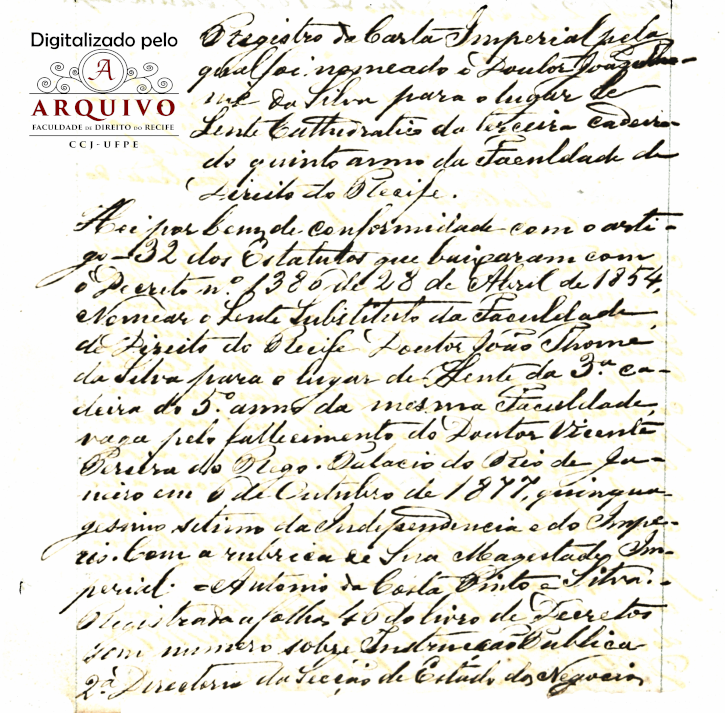 Digitalizado pelo
A
ARQUIVO
FACULDADE DE DIREITO DO RECIFE
CCJ-UFPE
Registro da Carta Imperial pela
qual foi nomeado o Doutor João Tho-
mé da Silva para o lugar de
Lente Cathedratico da terceira cadeira
do quinto anno da Faculdade de
Direito do Recife.
Hei por bem, de conformidade com o arti-
go - 32 dos Estatutos que baixaram com
o Decreto n.º 1386 de 28 de Abril de 1854,
Nomear o Lente Substituto da Faculdade
de Direito do Recife Doutor João Thomé
da Silva para o lugar de Lente da 3.ª ca-
deira do 5.º anno da mesma Faculdade,
vaga pelo fallecimento do Doutor Vicente
Pereira do Rego. Palacio do Rio de Ja-
neiro em 6 de Outubro de 1877, quinqua
gesimo setimo da Independencia e do Impe-
rio. Com a rubrica de Sua Magestade Im-
perial. = Antonio da Costa Pinto e Silva. -
Registrada a folha 46 do livro de Decretos
sem numero sobre Instrucção Publica
2ª Directoria da Secção de Estado dos Negocios